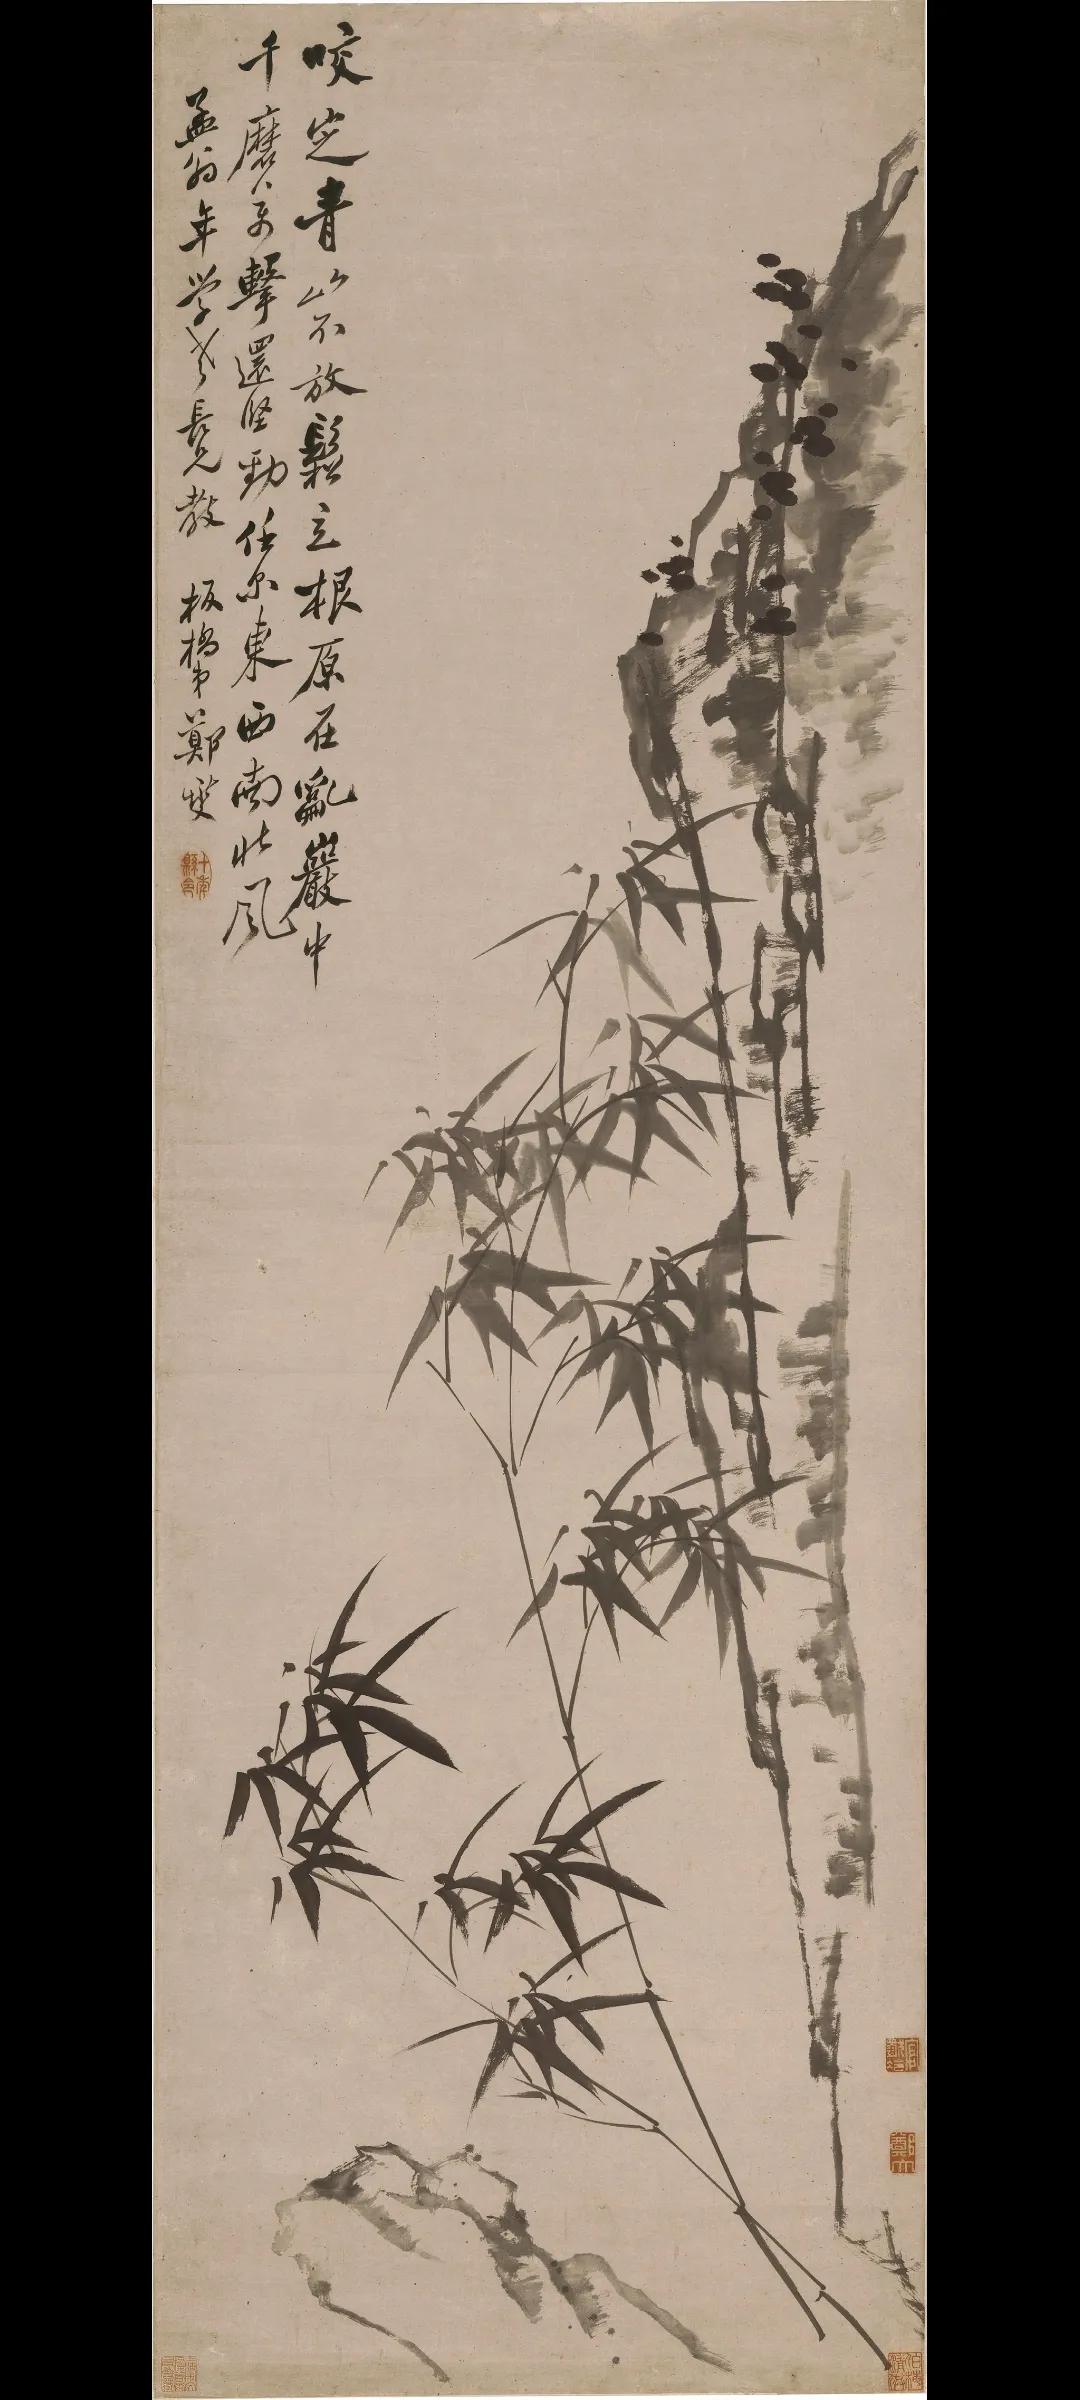 咬定青山不放鬆立根原在亂巖中
千磨万擊還坚勁任尔東西南北風
孟翁年学老長兄教 板橋弟鄭燮
十年縣令